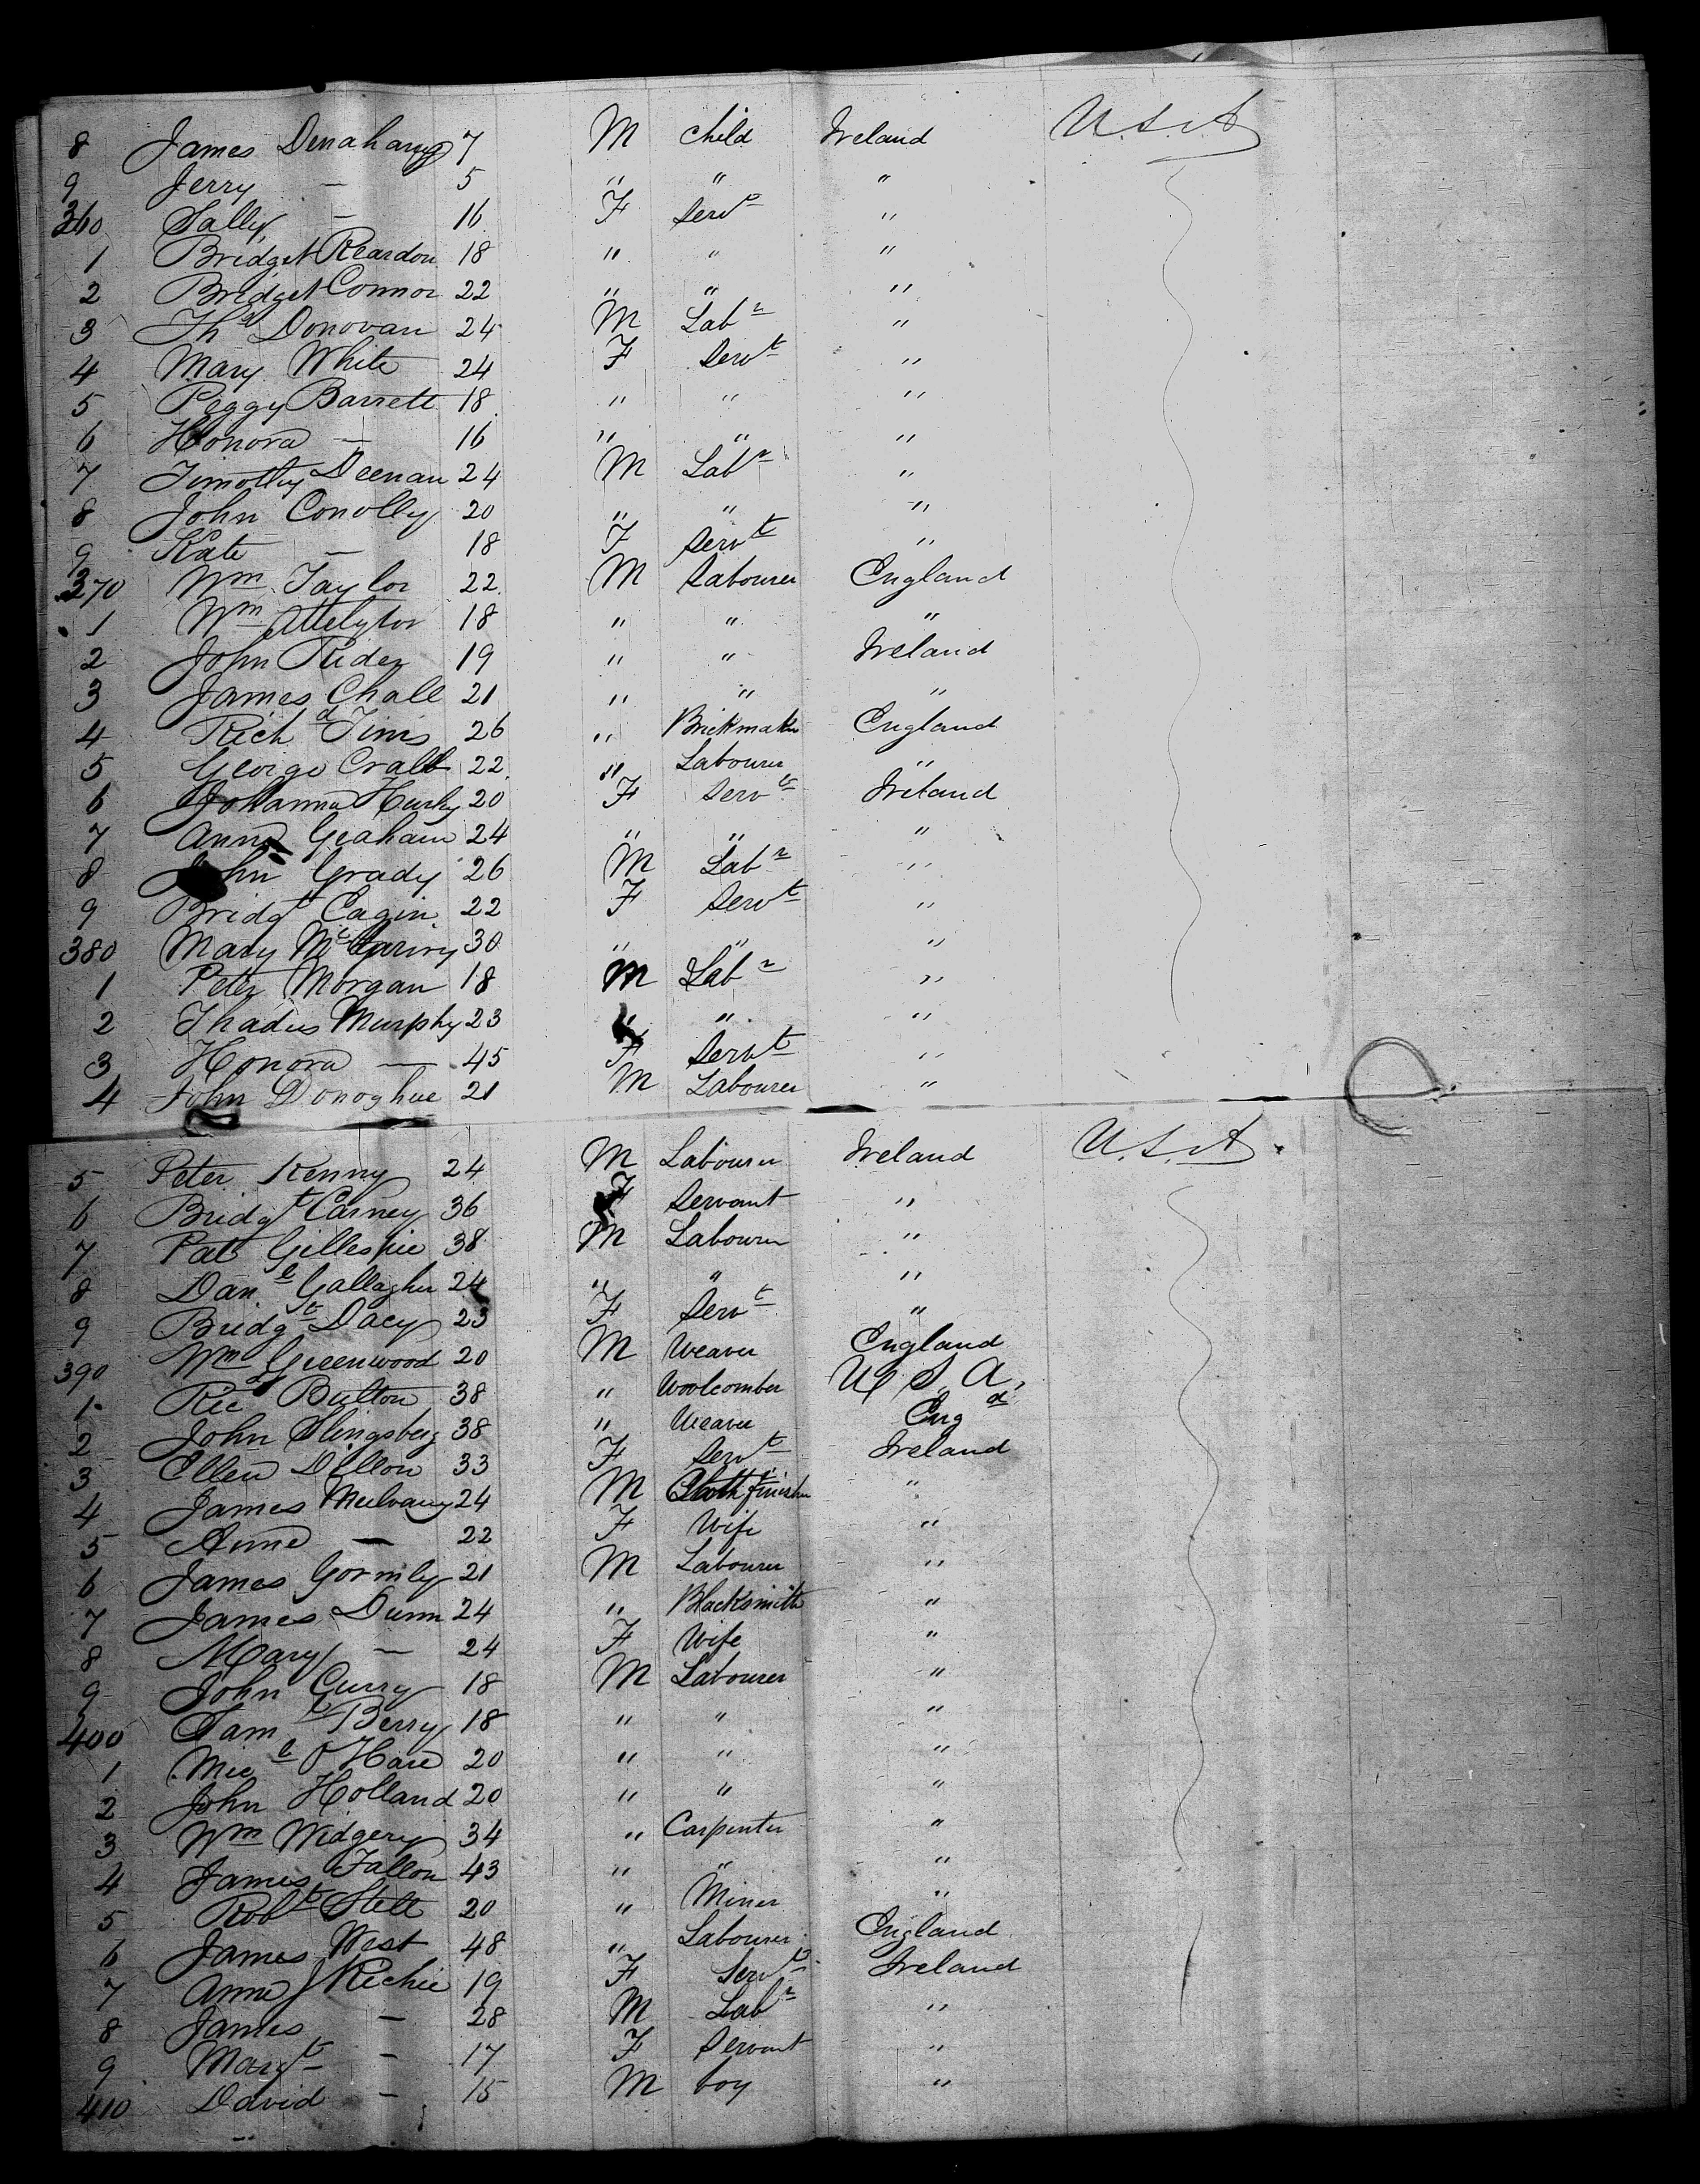 8 James Denahany 7 M Child Ireland U.S.A
9 Jerry — 5 " " "
360 Sally — 16 F Servt "
1 Bridget Reardon 18 " " "
2 Bridget Connor 22 " " "
3 Ths Donovan 24 M Labr "
4 Mary White 24 F Servt "
5 Peggy Barrett 18 " " "
6 Honora — 16 " " "
7 Timothy Deenan 24 M Labr "
8 John Conolly 20 " " "
9 Kate — 18 F Servt "
370 Wm Taylor 22 M Labourer England
1 Wm 18 " " "
2 John Rider 19 " " Ireland
3 James Chall 21 " " "
4 Richd Tims 26 " Brickmaker England
5 George Crabb 22 " Labourer "
6 Johanna Hurly 20 F Servt Ireland
7 Anna Graham 24 " " "
8 John Grady 26 M Labr "
9 Bridgt Eagin 22 F Servt "
380 Mary 30 " " "
1 Peter Morgan 18 M Labr "
2 Thadus Murphy 23 " " "
3 Honora — 45 F Servt "
4 John Donoghue 21 M Labourer "
5 Peter Kenny 24 M Labourer Ireland U.S.A.
6 Bridgt Carney 36 F Servant "
7 Pat Gillespie 38 M Labourer "
8 Danl Gallagher 24 " " "
9 Bridgt Dacy 23 F Servt "
390 Wm Greenwood 20 M Weaver England
1 Ricd Bulton 38 " Woolcomber U S A.
2 John Slingsberg 38 " Weaver Engd
3 Ellen Dillon 33 F Servt Ireland
4 James Mulvany 24 M Cloth finisher "
5 Anne — 22 F Wife "
6 James Gormly 21 M Labourer "
7 James Dunn 24 " Blacksmith "
8 Mary — 24 F Wife "
9 John Curry 18 M Labourer "
400 Saml Berry 18 " " "
1 Micl O'Hare 20 " " "
2 John Holland 20 " " "
3 Wm Widgery 34 " Carpenter "
4 James Fallon 43 " " "
5 Robt Stell 20 " Miner "
6 James West 48 " Labourer England
7 Anna Richie 19 F Servt Ireland
8 James — 28 M Labr "
9 Margt — 17 F Servant "
410 David — 15 M boy "